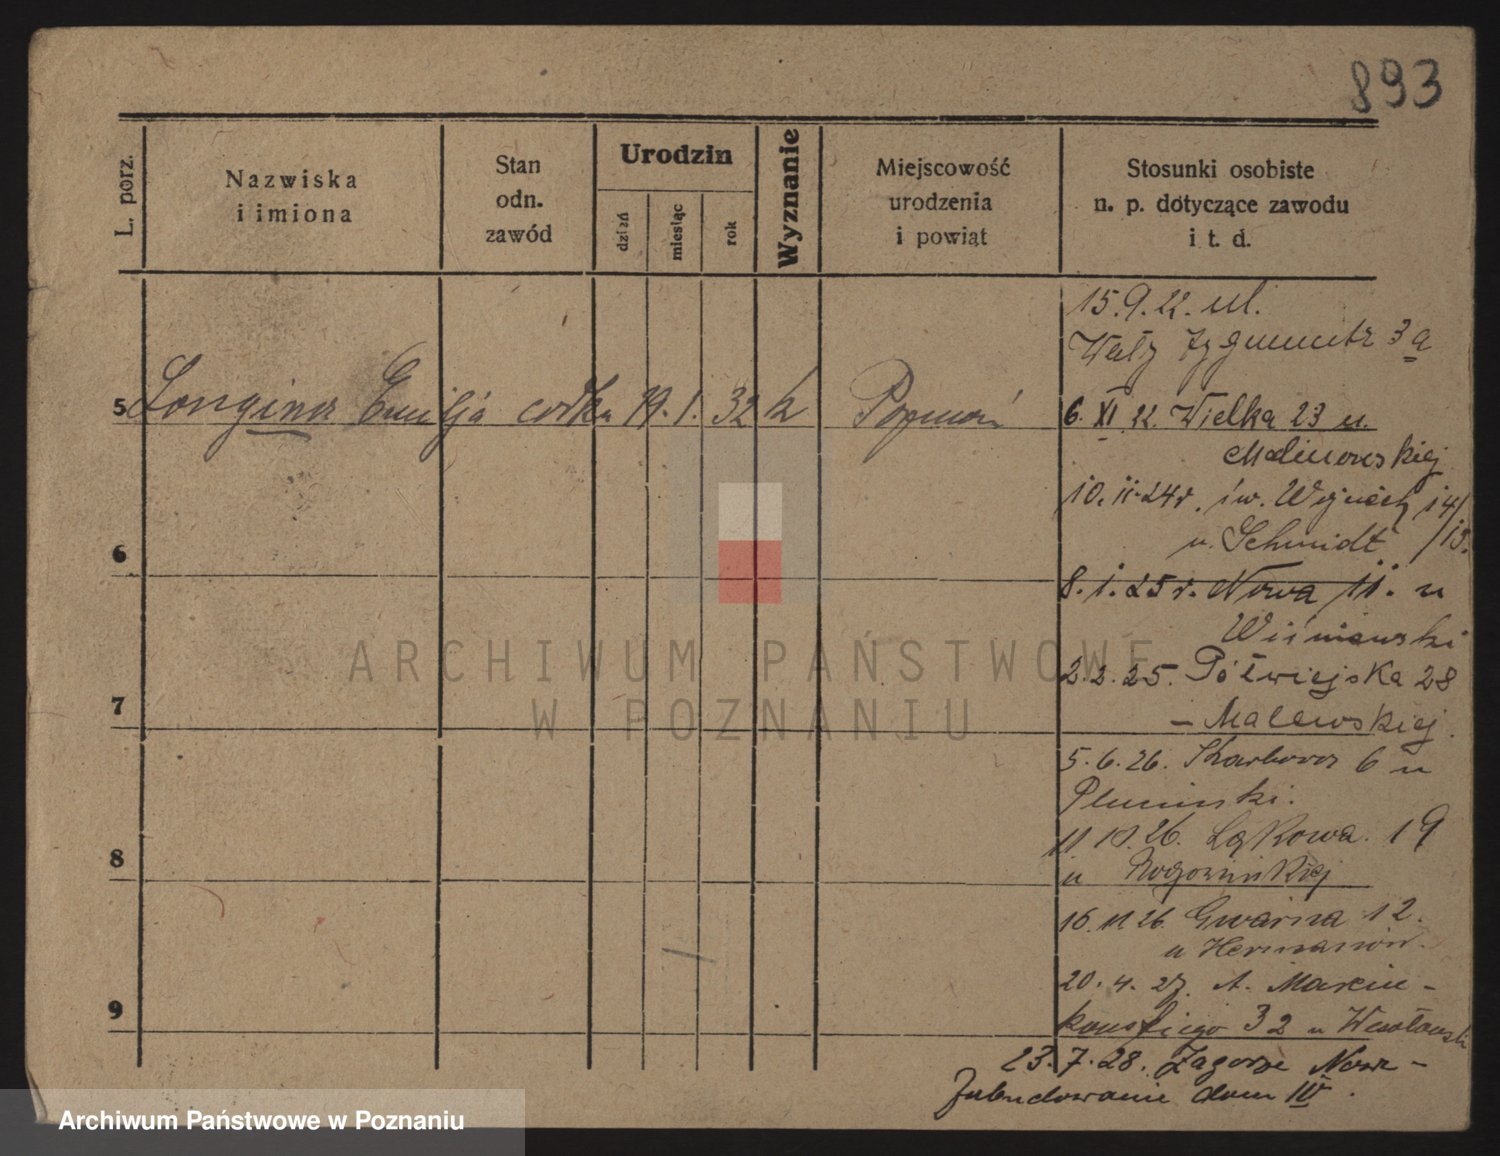 893
L. porz.
Nazwiska
i imiona
Stan
odn.
zawód
Urodzin
dzień
miesiąc
rok
Wyznanie
Miejscowość
urodzenia
i powiąt
Stosunki osobiste
n. p. dotyczące zawodu
i t. d.
15.9.22. ul.
Wały Zygmunta 3a
5 Longina Emilja córka 19. 1. 32 k Poznań
6. XI 22. Wielka 23 u.
Malinowskiej
10. 11. 24 r. św. Wojciech 14/15.
u. Schmidt
6
8. 1. 25 r. Nowa 11. u
Wiśniewski
2. 2. 25. Półwiejska 28
– Malewskiej.
7
5. 6. 26. Skarbowa 6 u
Plucinski.
11 10. 26. Łąkowa. 19
u Rogozińskiej
8
16. 11 26. Gwarna 12.
u Hermanów.
20. 4. 27. A. Marcin-
kowskiego 32 u
9
23. 7. 28. Zagorze Nowe-
Zabudowanie dom IV.
ARCHIWUM PAŃSTWOWE
W POZNANIU
Archiwum Państwowe w Poznaniu